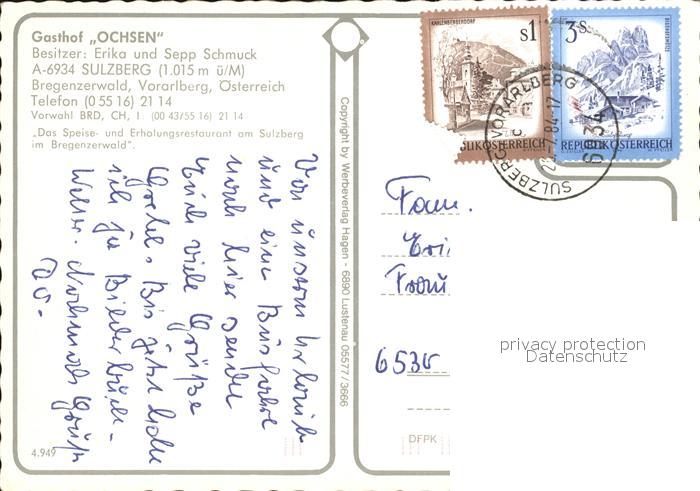 Gasthof „OCHSEN"
Besitzer: Erika und Sepp Schmuck
A-6934 SULZBERG (1.015 m ü/M)
Bregenzerwald, Vorarlberg, Österreich
Telefon (0 55 16) 21 14
Vorwahl BRD, CH, I. (00 43/55 16) 21 14
„Das Speise- und Erholungsrestaurant am Sulzberg
im Bregenzerwald".
Von unserem Urlaub
und eine Busfahrt
nach hier senden
Euch viele Grüße
Bis jetzt
Wetter. Nochmals Grüße
4.949
Copyright by Werbeverlag Hagen - 6890 Lustenau 05577/3666
KAHLENBERGERDORF
s1
REPUBLIK ÖSTERREICH
3s
BISCHOFSMÜTZE
REPUBLIK ÖSTERREICH
SULZBERG, VORARLBERG
7.84-17
6934
Fam.
6530
DFPK
privacy protection
Datenschutz